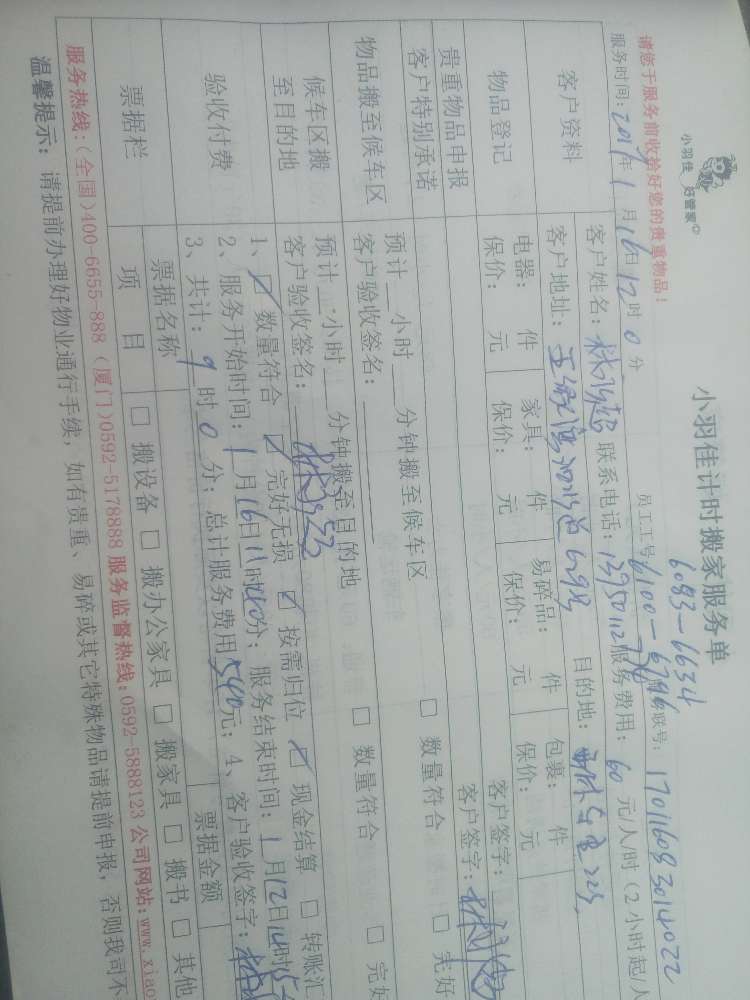 小羽佳 好管家
小羽佳计时搬家服务单
6083-6634
请您于服务前收拾好您的贵重物品！ 员工工号 6100-6796 联号：17011608 3014022
服务时间：2017年1月16日12时0分 服务费用：60元/人/时（2小时起/人
客户资料 客户姓名： 联系电话：
客户地址： 629号 目的地：
物品登记 电器： 件 家具： 件 易碎品： 件 包裹： 件
保价： 元 保价： 元 保价： 元 保价： 元
贵重物品申报 客户签字：
客户特别承诺 客户签字：
物品搬至候车区 预计 小时 分钟搬至候车区 □ 数量符合 □ 完好
客户验收签名：
候车区搬至目的地 预计 小时 分钟搬至目的地 □ 数量符合 □ 完好
客户验收签名：
验收付费 1、☑ 数量符合 ☑ 完好无损 ☑ 按需归位 ☑ 现金结算 □ 转账汇
2、服务开始时间：1月16日11时 分；服务结束时间：1月 日14时
3、共计：9时0分；总计服务费用540元；4、客户验收签字：
票据栏 票据名称 票据金额
项 目 □ 搬设备 □ 搬办公家具 □ 搬家具 □ 搬书 □ 其他
服务热线：（全国）400-6655-888（厦门）0592-5178888 服务监督热线：0592-5888123 公司网站：www.xiao
温馨提示：请提前办理好物业通行手续，如有贵重、易碎或其它特殊物品请提前申报，否则我司不